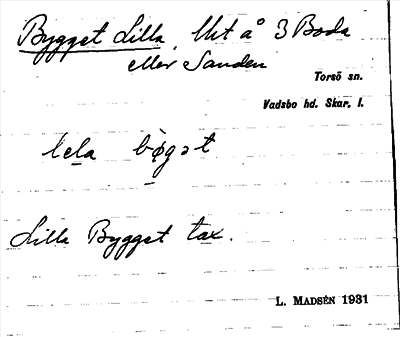 Bygget Lilla, Utt å 3 Boda
eller Sanden
Torsö sn.
Vadsbo hd. Skar. l.
lela bøgət
Lilla Bygget tax.
L. MADSÉN 1931